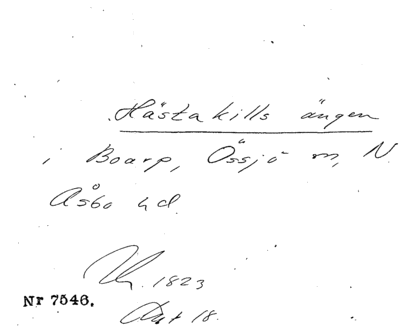 Hästakills ängen
i Boarp, Össjö sn, N.
Åsbo hd.
1823
Nr 7546.
Akt 18.